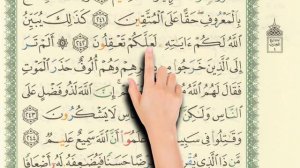 بِٱلْمَعْرُوفِ حَقًّا عَلَى ٱلْمُتَّقِينَ ٢٤١ كَذَٰلِكَ يُبَيِّنُ
ٱللَّهُ لَكُمْ ءَايَٰتِهِۦ لَعَلَّكُمْ تَعْقِلُونَ ٢٤٢ ۞ أَلَمْ تَرَ
إِلَى ٱلَّذِينَ خَرَجُوا۟ مِن وَهُمْ أُلُوفٌ حَذَرَ ٱلْمَوْتِ
فَقَالَ لَهُمُ ٱللَّهُ إِنَّ ٱللَّهَ لَذُو فَضْلٍ عَلَى
ٱلنَّاسِ وَلَٰكِنَّ أَكْ ٱلنَّاسِ لَا يَشْكُرُونَ ٢٤٣
وَقَٰتِلُوا۟ فِى سَبِيلِ أَنَّ ٱللَّهَ سَمِيعٌ عَلِيمٌ ٢٤٤
مَّن ذَا ٱلَّذِى يُقْرِضُ حَسَنًا فَيُضَٰعِفَهُۥ لَهُۥٓ أَضْعَافًا